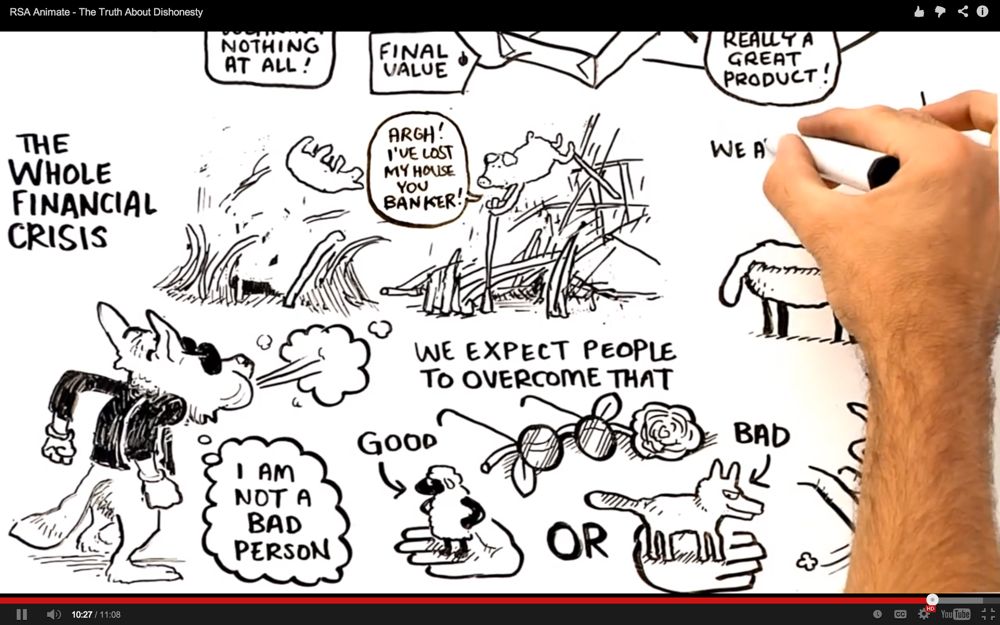 RSA Animate - The Truth About Dishonesty
NOTHING
AT ALL!
FINAL
VALUE
REALLY A
GREAT
PRODUCT!
THE
WHOLE
FINANCIAL
CRISIS
ARGH!
I'VE LOST
MY HOUSE
YOU
BANKER!
WE A
WE EXPECT PEOPLE
TO OVERCOME THAT
I AM
NOT A
BAD
PERSON
GOOD
OR
BAD
10:27 / 11:08
CC
HD
YouTube